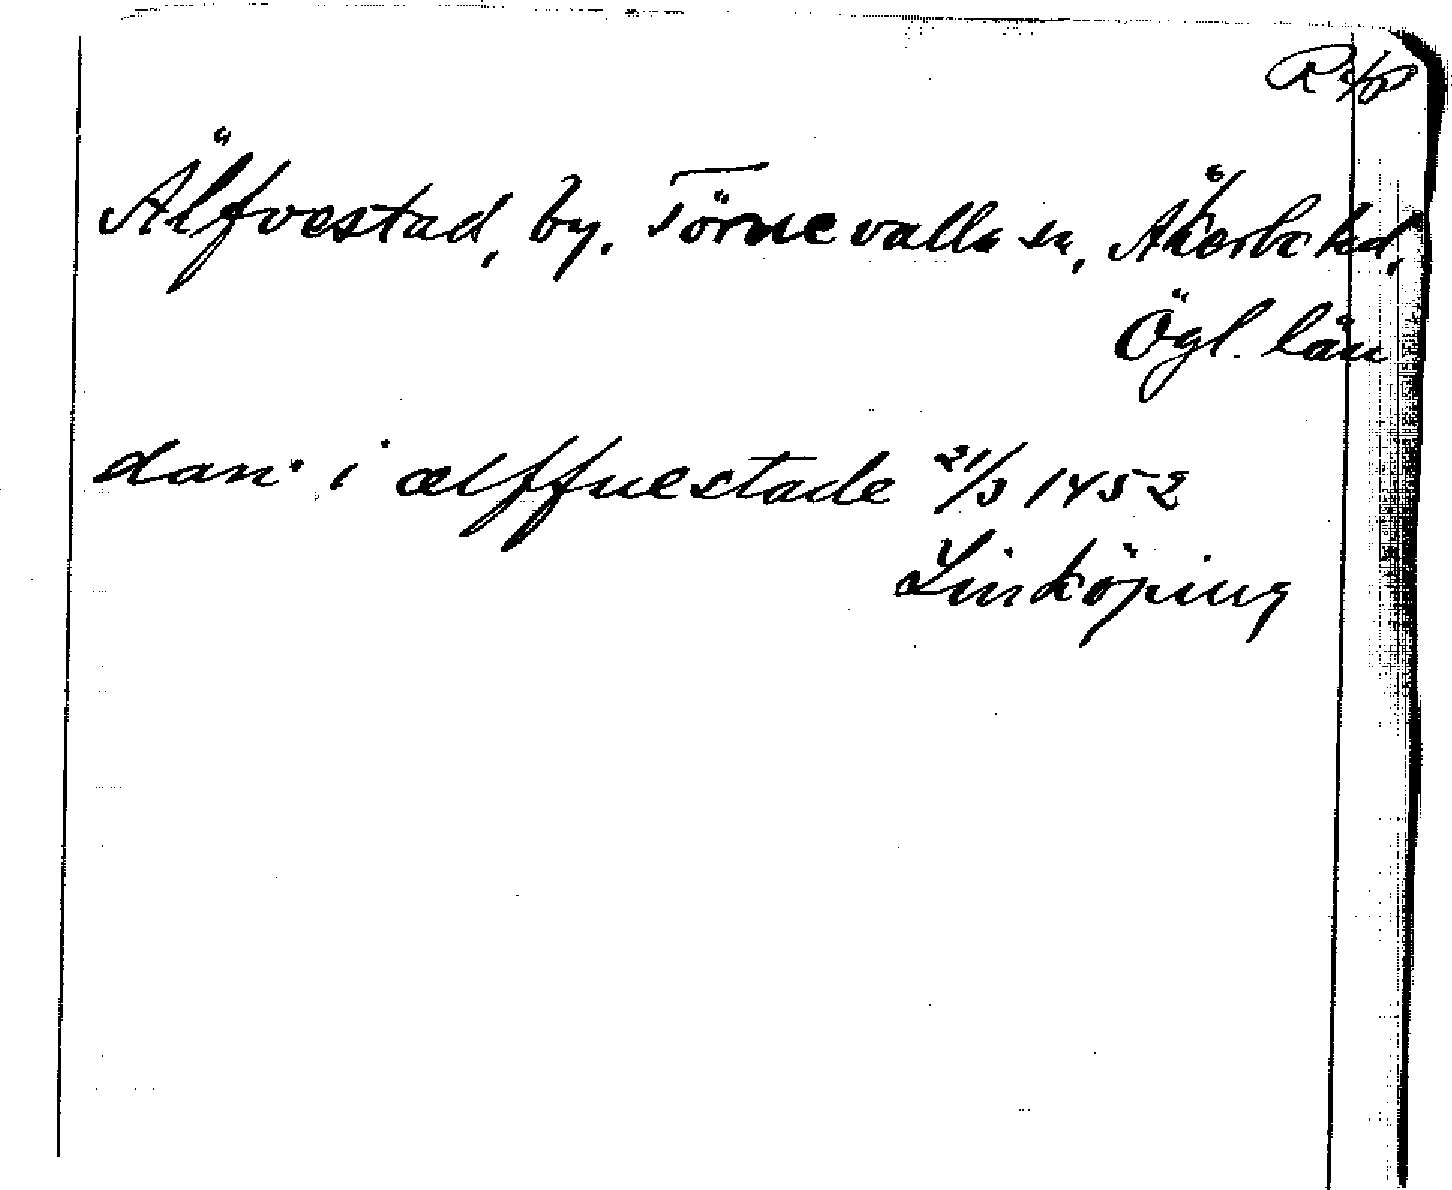 Älfvestad, by. Törnevalla sn, Åkerbo hd,
Ögl. län
dan. i ælffuestade 21/3 1452
Linköping